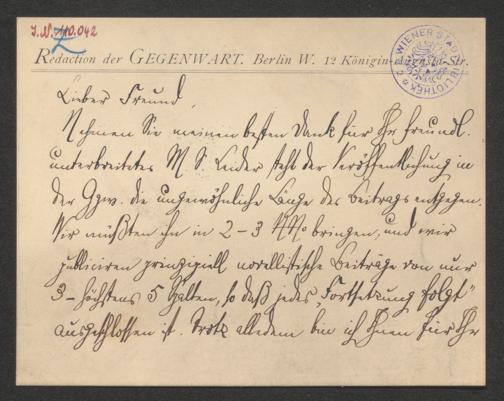 I.N. 110.042
WIENER STADTBIBLIOTHEK
Redaction der GEGENWART. Berlin W. 12 Königin-Augusta-Str.
Lieber Freund,
Nehmen Sie meinen besten Dank für Ihr freundl.
unterbreitetes MS. Leider steht der Veröffentlichung in
der Ggw. die ungewöhnliche Länge des Beitrags entgegen.
Wir müßten ihn in 2-3 NNo bringen, und wir
publiciren prinzipiell novellistische Beiträge von nur
3-höchstens 5 Spalten, so daß jedes „Fortsetzung folgt"
ausgeschlossen ist. Trotz alledem bin ich Ihnen für Ihr